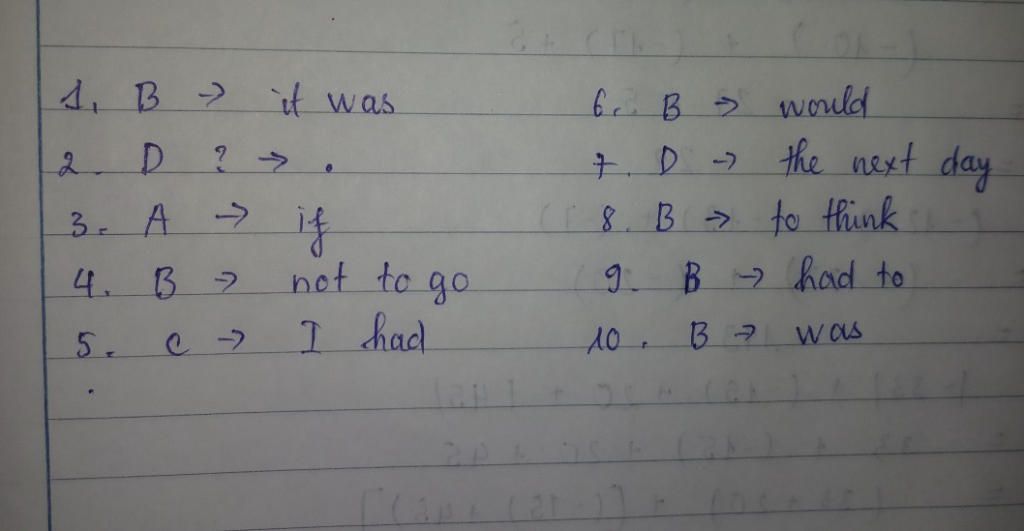 1, B → it was
2. D ? → .
3. A → if
4. B → not to go
5. C → I had
6. B → would
7. D → the next day
8. B → to think
9. B → had to
10. B → was